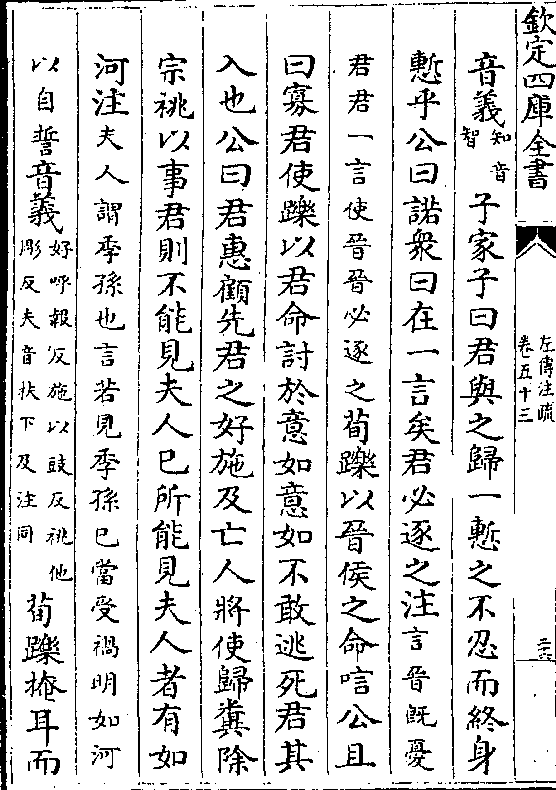 欽定四庫全書
左傳注疏
卷五十三
二六
音義知音智子家子曰君與之歸一慙之不忍而終身
慙乎公曰諾衆曰在一言矣君必逐之注言晉旣憂
君君一言使晉晉必逐之荀躒以晉侯之命唁公且
曰寡君使躒以君命討於意如意如不敢逃死君其
入也公曰君惠顧先君之好施及亡人將使歸糞除
宗祧以事君則不能見夫人已所能見夫人者有如
河注夫人謂季孫也言若見季孫已當受禍明如河
以自誓音義好呼報反施以豉反祧他彫反夫音扶下及注同荀躒掩耳而